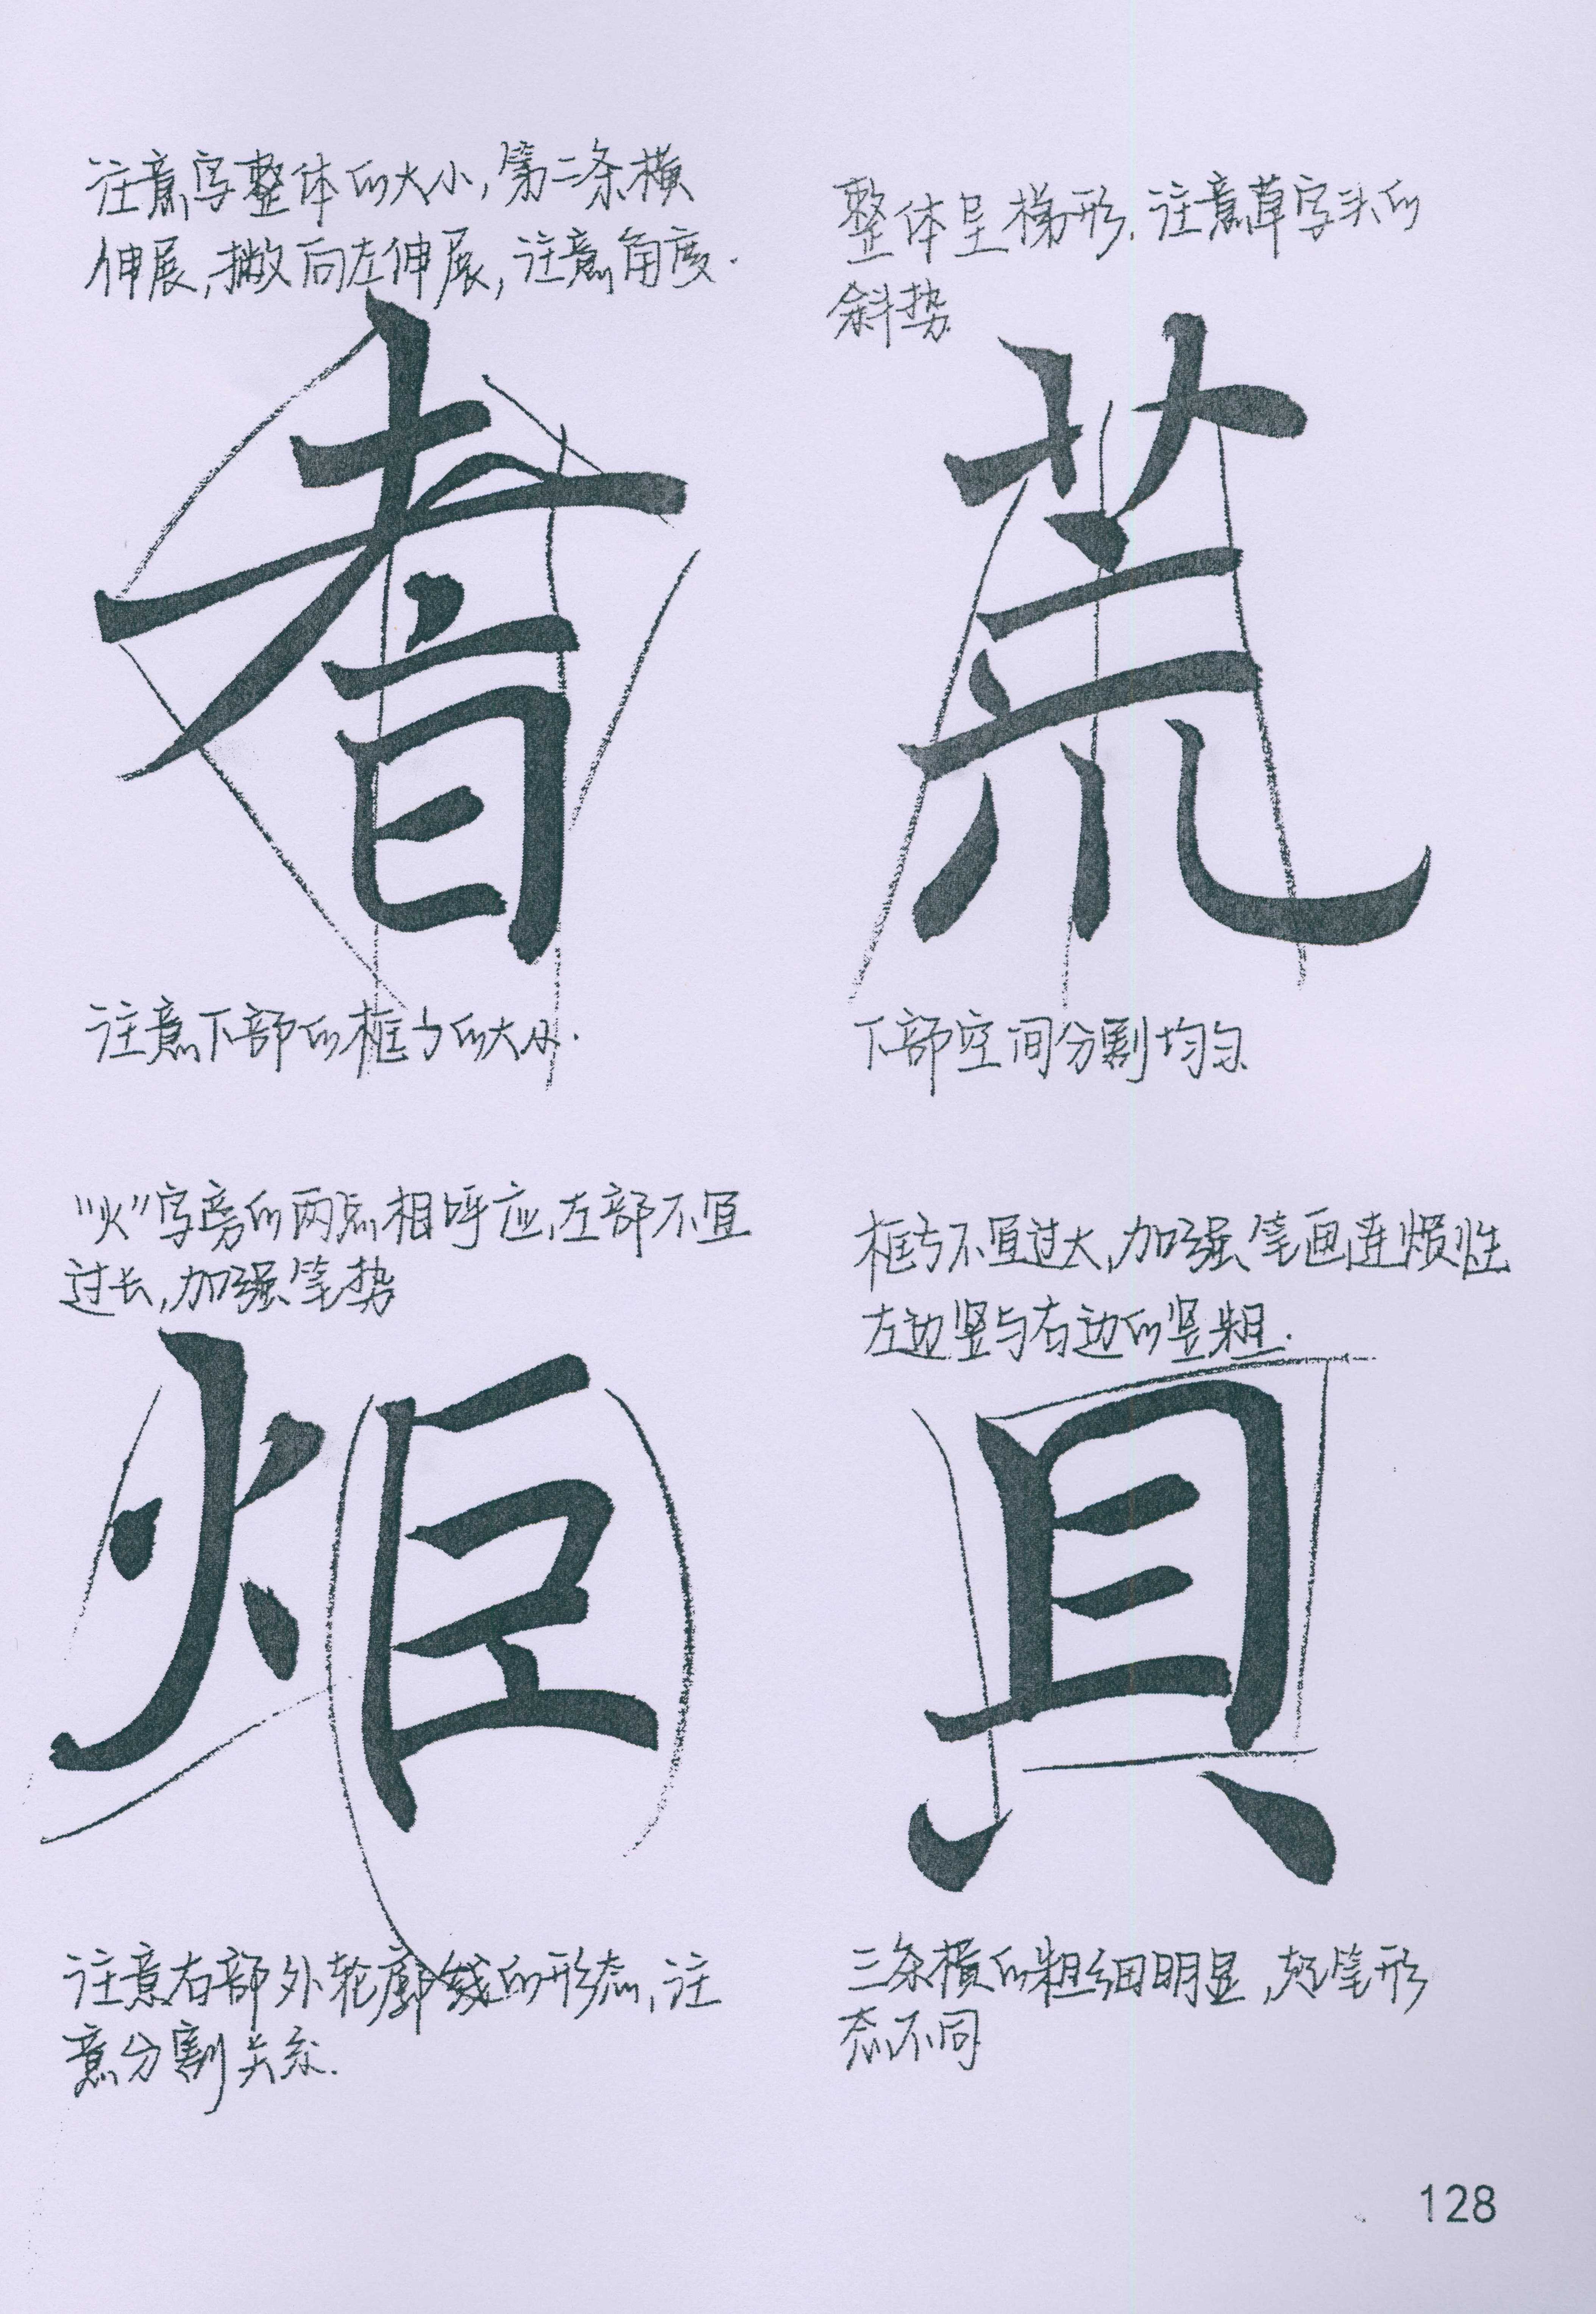 注意字整体的大小,第二条横
伸展,撇向左伸展,注意角度.
耆
注意下部的框方的大小.
整体呈梯形.注意草字头的
斜势
荒
下部空间分割均匀
“火”字旁的两点相呼应,左部不宜
过长,加强笔势
炬
注意右部外轮廓线的形态,注
意分割关系.
框方不宜过大,加强笔画连惯性
左边竖与右边的竖粗.
具
三条横的粗细明显,起笔形
态不同
128